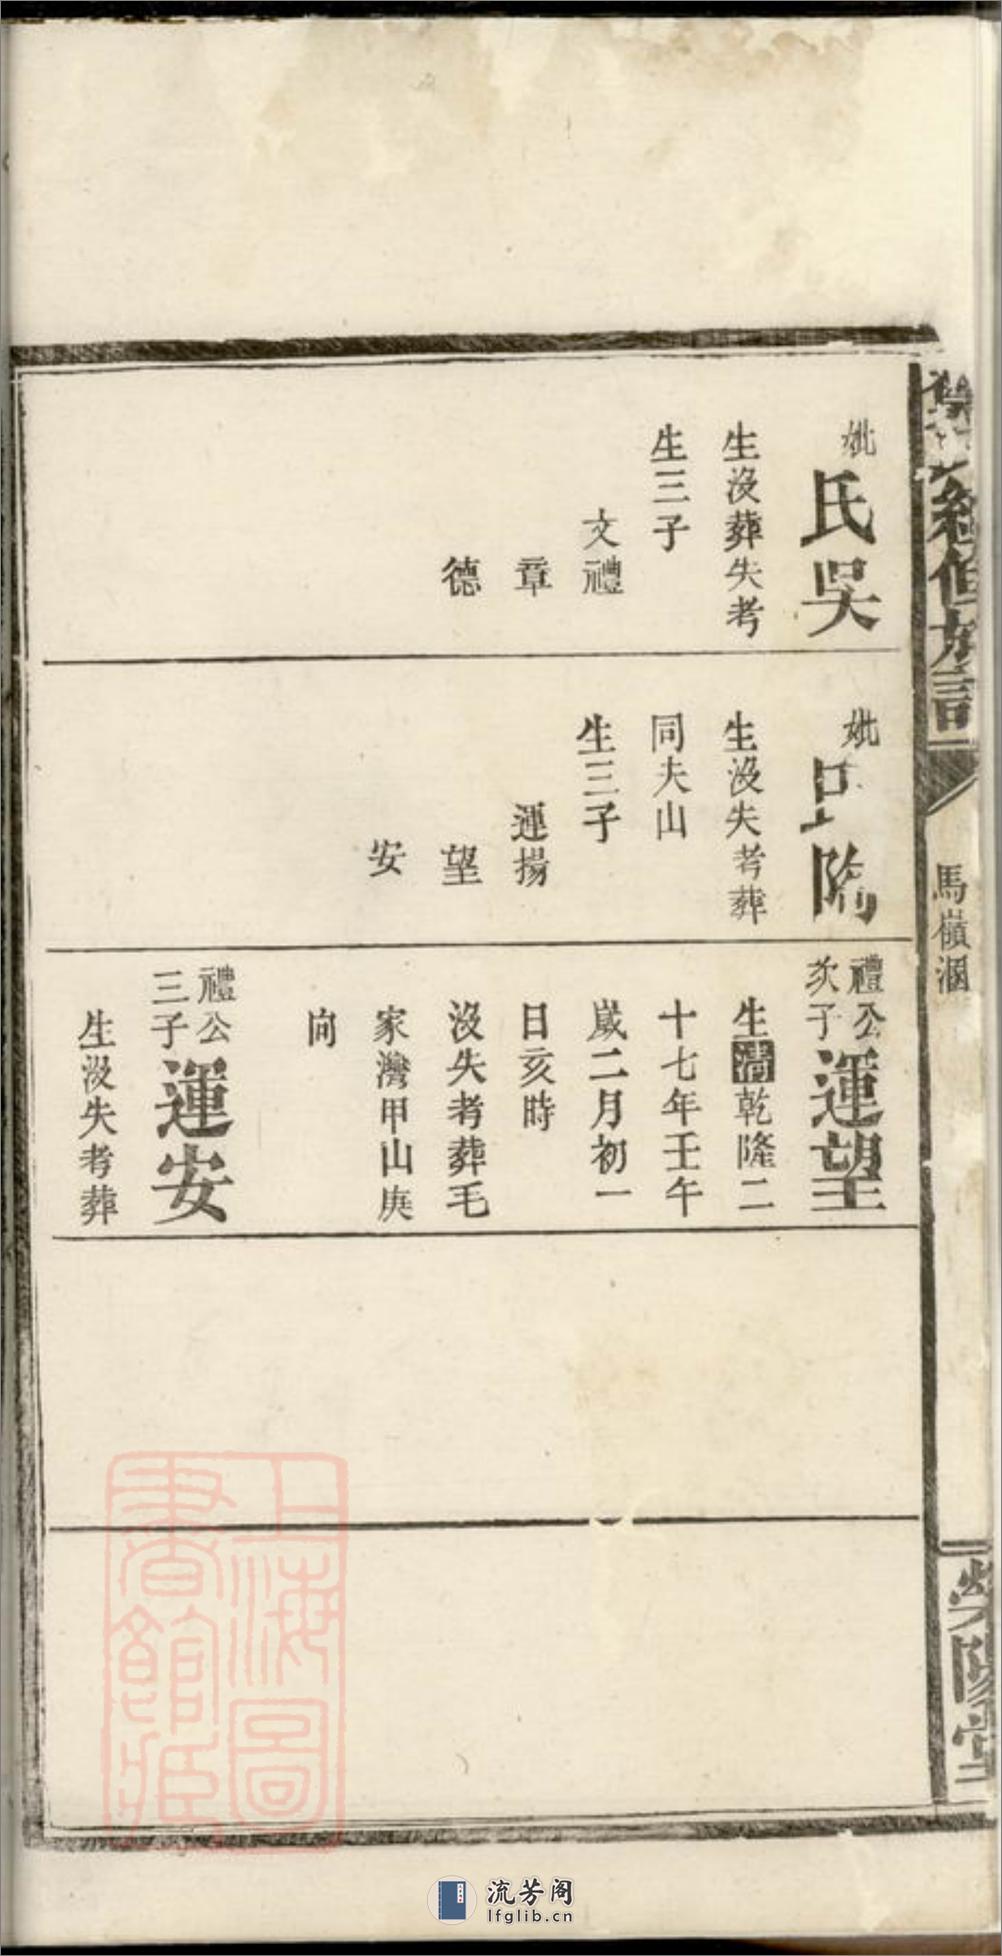 馬嶺溷
妣
氏吳
生沒葬失考
生三子
文禮
章
德
妣
生沒失考葬
同夫山
生三子
運揚
望
安
禮公
次子
運望
生清乾隆二
十七年壬午
歲二月初一
日亥時
沒失考葬毛
家灣甲山庚
向
禮公
三子
運安
生沒失考葬
上海圖
書館藏
流芳阁
lfglib.cn